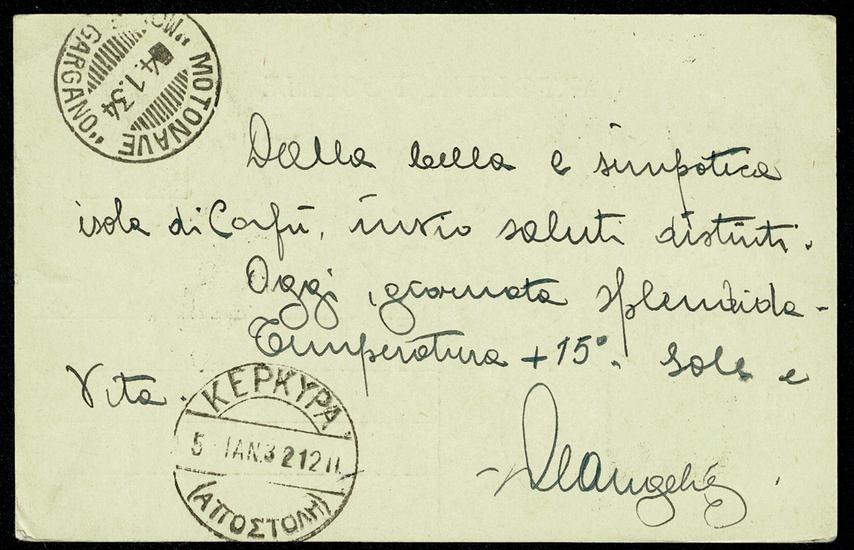 MOTONAVE "GARGANO"
4.1.34
Dalla bella e simpatica
isola di Corfù, invio saluti distinti.
Oggi, giornata splendida -
Temperatura +15°. Sole e
Vita.
ΚΕΡΚΥΡΑ
5 ΙΑΝ.3 21 12
(ΑΠΟΣΤΟΛΗ)
DeAngelis